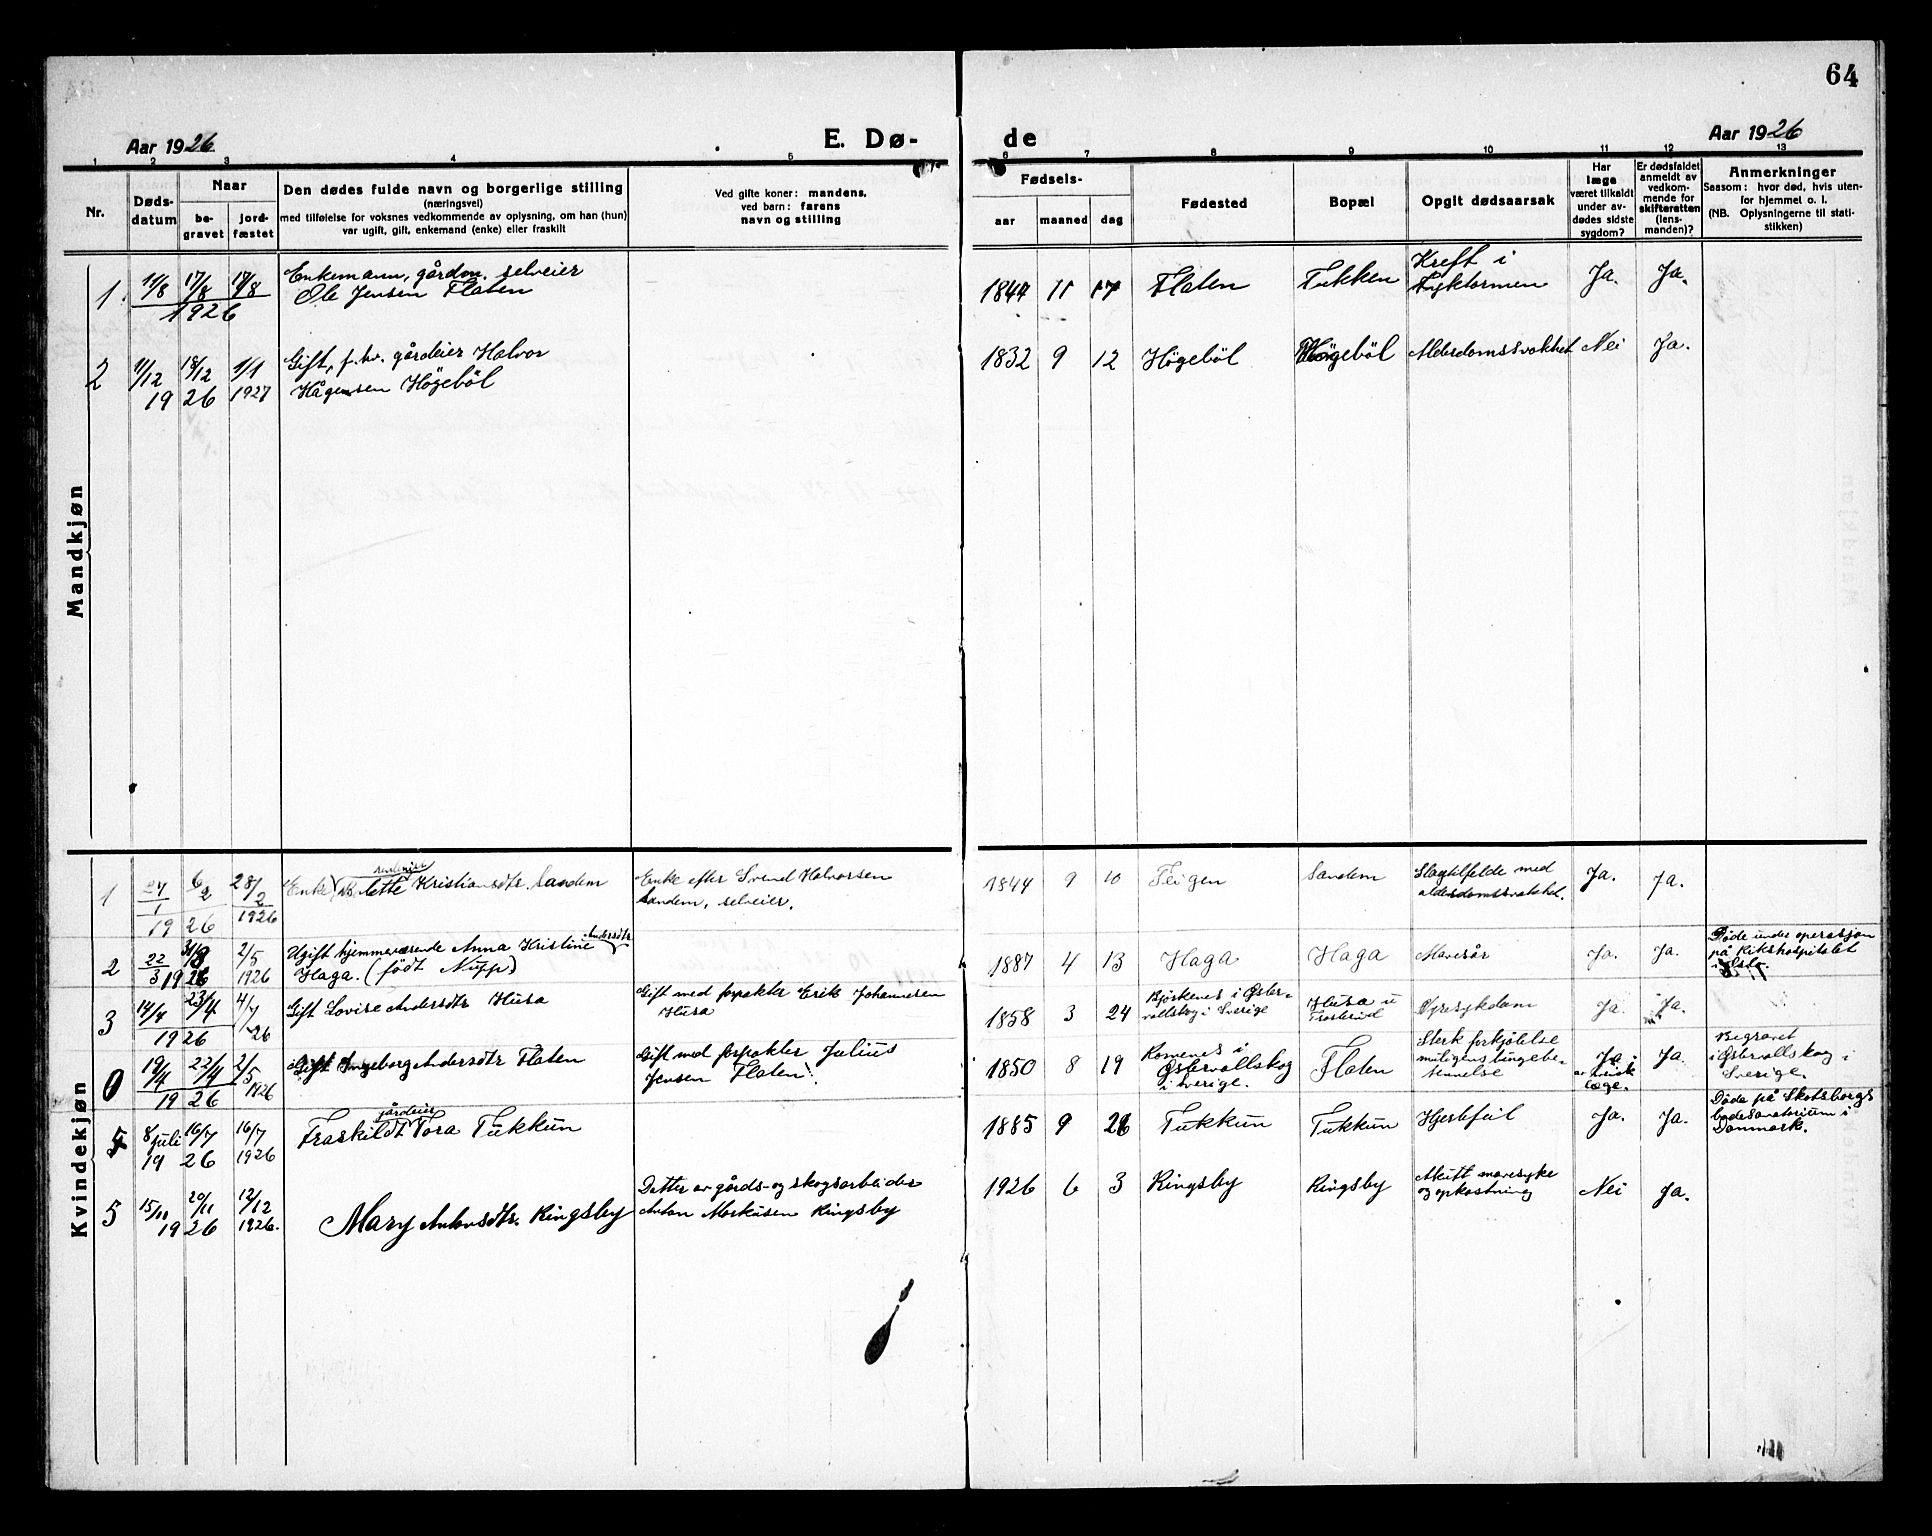 64
Aar 1926
E. Dø-
de
Aar 1926
1 2 3 4 5 6 7 8 9 10 11 12 13
Nr.
Døds-
datum
Naar
be-
gravet
jord-
fæstet
Den dødes fulde navn og borgerlige stilling
(næringsvei)
med tilføielse for voksnes vedkommende av oplysning, om han (hun)
var ugift, gift, enkemand (enke) eller fraskilt
Ved gifte koner: mandens,
ved barn: farens
navn og stilling
Fødsels-
aar
maaned
dag
Fødested
Bopæl
Opgit dødsaarsak
Har
læge
været tilkaldt
under av-
dødes sidste
sygdom?
Er dødsfaldet
anmeldt av
vedkom-
mende for
skifteretten
(lens-
manden)?
Anmerkninger
Saasom: hvor død, hvis uten-
for hjemmet o. l.
(NB. Oplysningerne til stati-
stikken)
Mandkjøn
1 11/8 17/8 17/8 1926
Enkemann, gårdm. selveier
Ole Jensen Flaten
1844 11 17 Flaten Tukken
Kreft i
Ja. Ja.
2 11/12 18/12 1926 1/1 1927
Gift, f. hv. gårdeier Halvor
Hågensen Högeböl
1832 9 12 Högeböl Högeböl Alderdomssvakhet Nei Ja.
Kvindekjøn
1 27/1 6/2 1926 28/2 1926
Enke lette Kristiansdtr. Sandem
Enke efter Svend Halvorsen
Sandem, selveier.
1844 9 10 Teigen Sandem
Slagtilfelde med
alderdomssvakhet.
Ja. Ja.
2 22/3 1926 2/5 1926
Ugift hjemmeværende Anna Kristine Andersdtr
Haga. (født Nupp)
1887 4 13 Haga Haga Mavesår Ja. Ja.
Døde under operasjon
på Rikshospitalet
i Oslo.
3 14/4 23/4 1926 4/7 26
Gift Lovise Andersdtr Husa
Gift med forpakter Erik Johannesen
Husa
1858 3 24
Bjørkenes i Øster-
vallskog i Sverige
Husa u
Øresykdom Ja. Ja.
0 19/4 22/4 1926 2/5 1926
Gift Ingeborg Andersdtr Flaten
Gift med forpakter Julius
Jensen Flaten.
1850 8 19
Komenes i
Østervallskog
i Sverige.
Flaten
Sterk forkjølelse
muligens lungebe-
tennelse
Ja
læge.
Ja.
Begravet
i Østervallskog i
Sverige.
5 8 juli 16/7 1926 16/7 1926
gårdeier
Fraskildt Tora Tukkun
1885 9 26 Tukkun Tukkun Hjertefeil Ja. Ja.
Døde på Skotsborgs
badesanatorium i
Danmark.
5 15/11 20/11 1926 12/12 1926.
Mary Antonsdtr. Kingsby
Datter av gårds- og skogsarbeider
Anton Markusen Kingsby
1926 6 3 Kingsby Kingsby
Akutt mavesyke
og opkastning
Nei Ja.